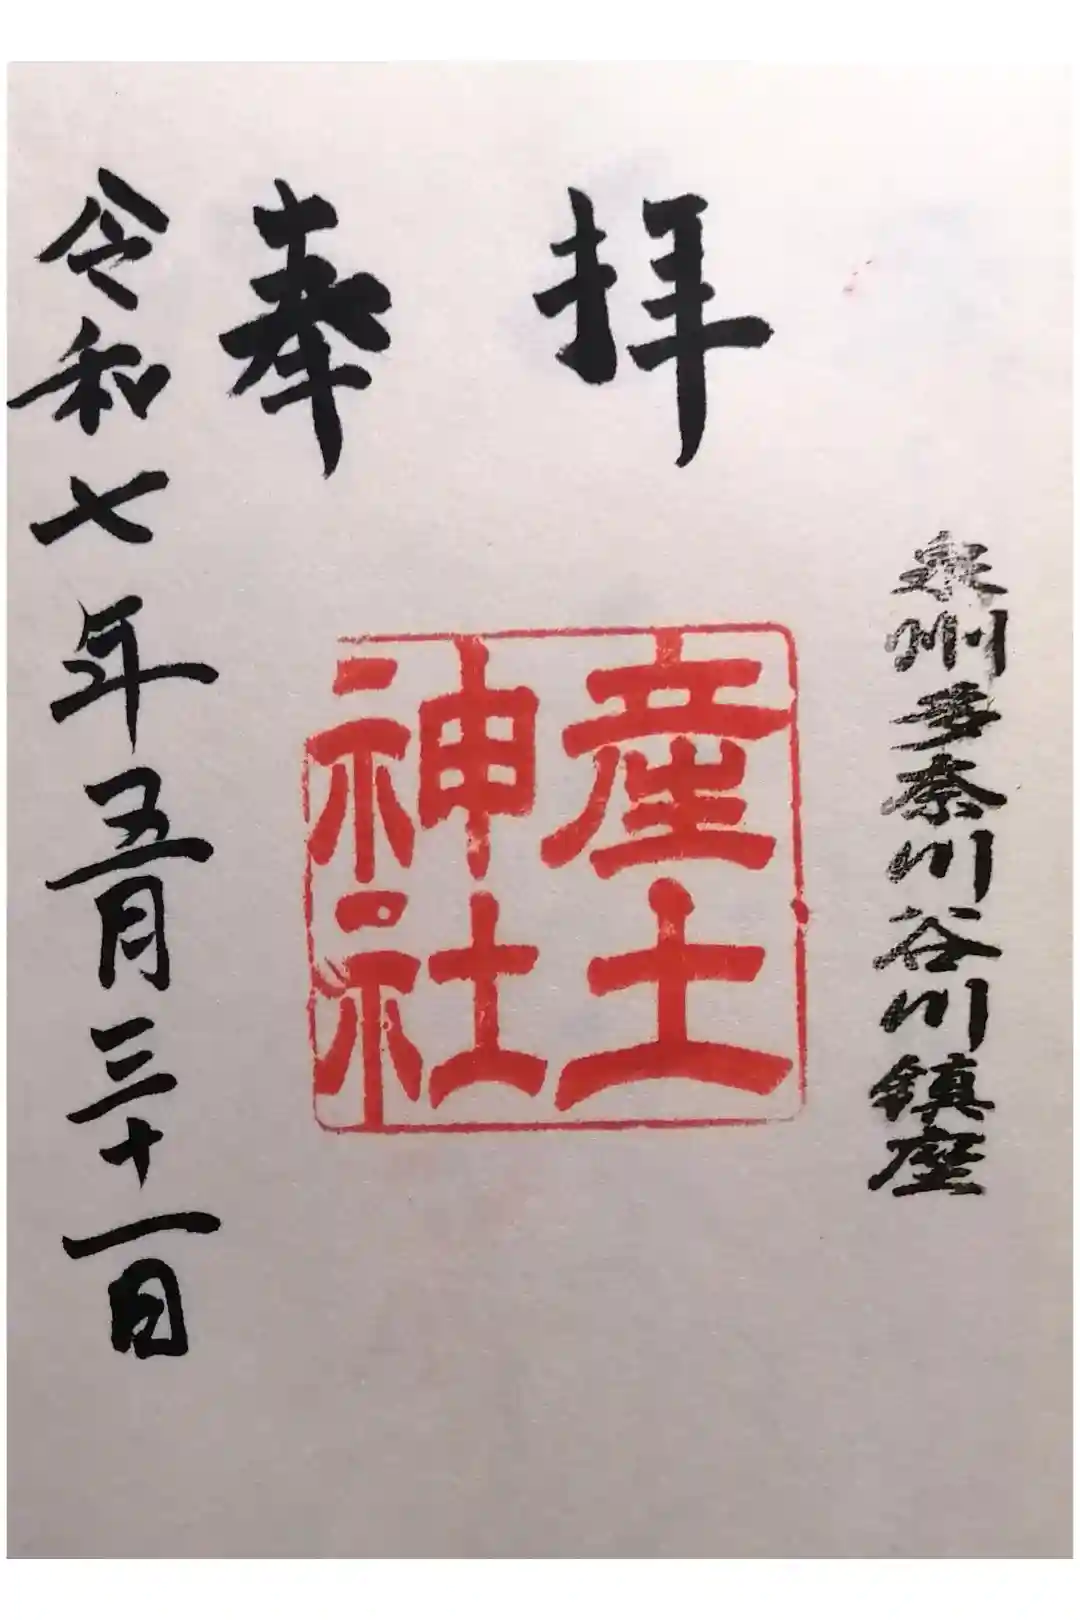 泉州多奈川谷川鎮座
拝
奉
産土
神社
令和七年五月三十一日